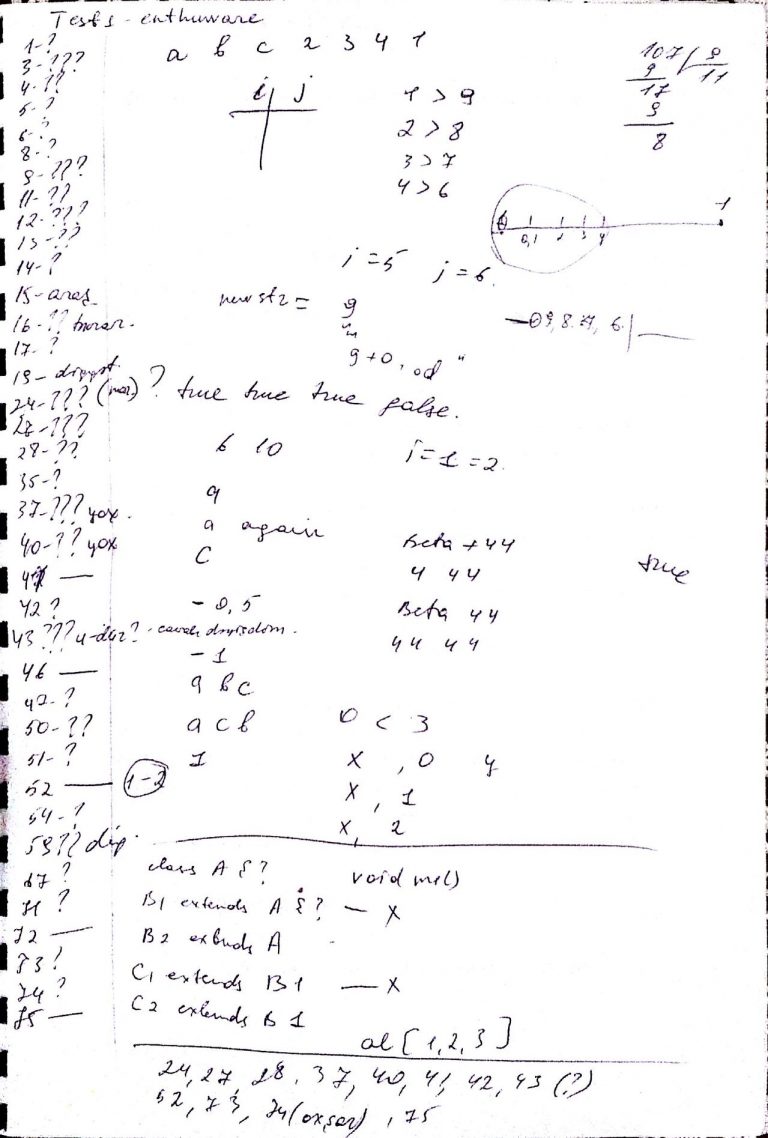 Tests - enthuware
1-?
3-???
4-??
5-?
6-?
8-?
9-???
11-??
12-???
13-??
14-?
15-araş.
16-??
17-?
19-
24-??? ?
27-???
28-??
35-?
37-??? yox.
40-?? yox
41 —
42 ?
43 ???
46 —
47-?
50-??
51-?
52 — 1-2
54-?
59 ??
67 ?
71 ?
72 —
73 ?
74 ?
75 —
a b c 2 3 4 1
i j
1 > 9
2 > 8
3 > 7
4 > 6
107 9
9 11
17
9
8
0 0,1 2 3 4 1
i = 5 j = 6
newstr = 9
9+0, "
true true true false.
6 10 i = 1 = 2.
a
a again
C
Beta + 44
4 44
true
- 0,5
Beta 44
44 44
- 1
a b c
a c b 0 < 3
1 x , 0 y
x , 1
x, 2
class A {? void m1()
B1 extends A {? — x
B2 extends A
C1 extends B1 — x
C2 extends B1
al [1,2,3]
24, 27, 28, 37, 40, 41, 42, 43 (?)
52, 73, 74 (oxşar), 75